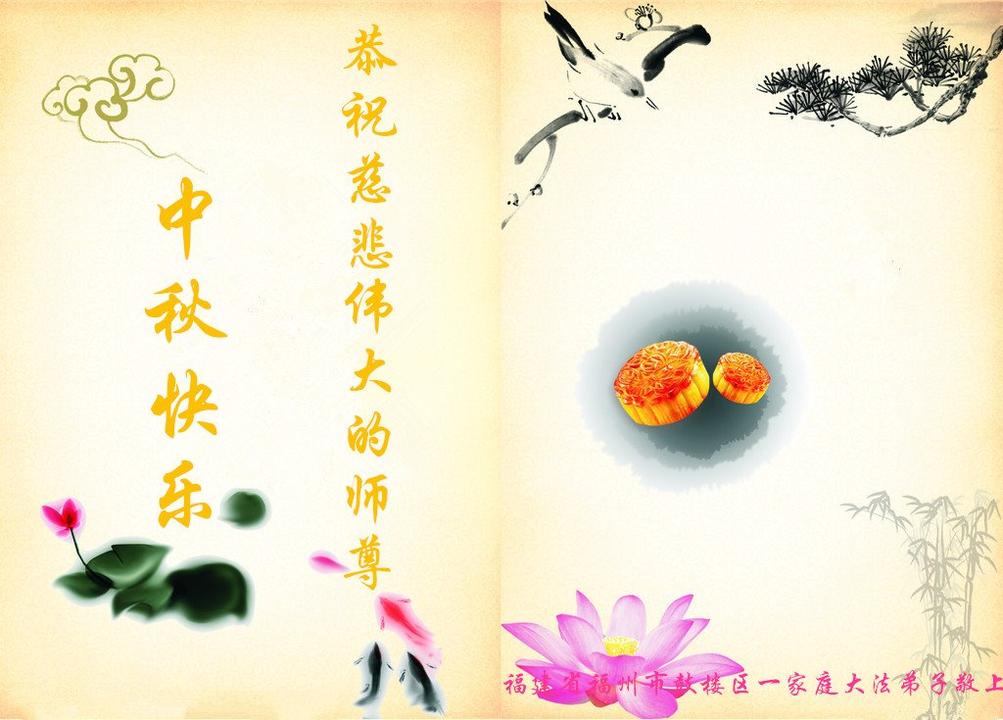 恭祝慈悲伟大的师尊
中秋快乐
福建省福州市鼓楼区一家庭大法弟子敬上